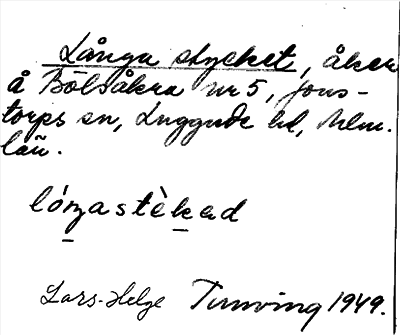 Långa stycket, åker
å Bölsåkra nr 5, Jons-
torps sn, Luggude hd, Mlm.
län.
lóŋastèkad
Lars-Helge Tunving 1949.